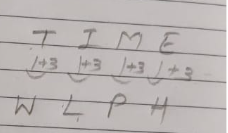 T I M E
+3 +3 +3 +3
W L P H